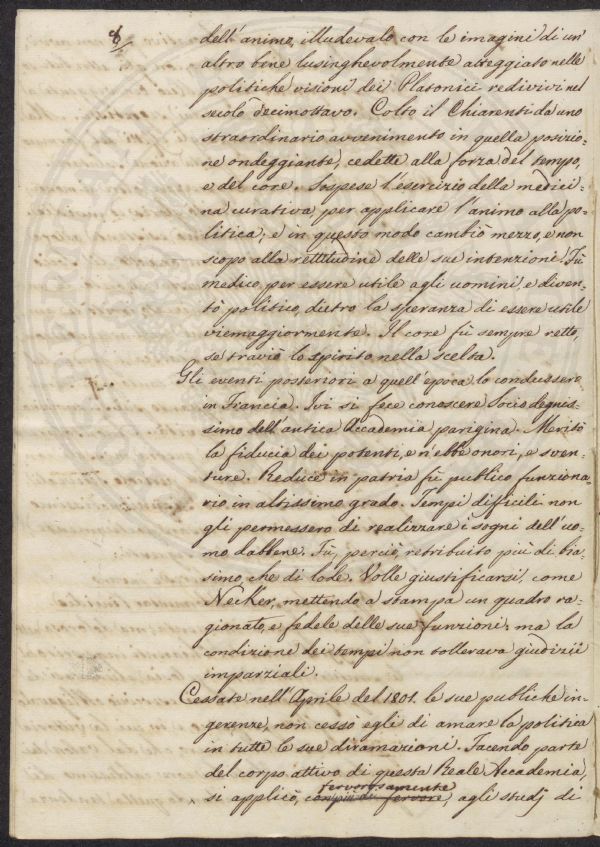 8/
dell'animo, illudevalo con le imagini di un'
altro bene lusinghevolmente atteggiato nelle
politiche visioni dei Platonici redivivi nel
secolo decimottavo. Colto il Chiarenti da uno
straordinario avvenimento in quella posizio=
ne ondeggiante, cedette alla forza del tempo,
e del core. Sospese l'esercizio della medici=
na curativa, per applicare l'animo alla po=
litica; e in questo modo cambiò mezzo, e non
scopo alla rettitudine delle sue intenzioni. Fù
medico, per essere utile agli uomini, e diven=
tò politico, dietro la speranza di essere utile
viemaggiormente. Il core fù sempre retto,
se traviò lo spirito nella scelta.
Gli eventi posteriori a quell'epoca lo condussero
in Francia. Ivi si fece conoscere Socio degnis=
simo dell'antica Accademia parigina. Meritò
la fiducia dei potenti, e n'ebbe onori, e sven=
ture. Reduce in patria fù publico funziona=
rio in altissimo grado. Tempi difficili non
gli permessero di realizzare i sogni dell'uo=
mo dabbene. Fù, perciò, retribuito più di bia=
simo, che di lode. Volle giustificarsi, come
Neiker, mettendo a stampa un quadro ra=
gionato, e fedele delle sue funzioni: ma la
condizione dei tempi non tollerava giudizii
imparziali.
Cessate nell'Aprile del 1801. le sue publiche in=
gerenze, non cessò egli di amare la politica
in tutte le sue diramazioni. Facendo parte
del corpo attivo di questa Reale Accademia,
fervorosamente
si applicò, con più di fervore, agli studj di